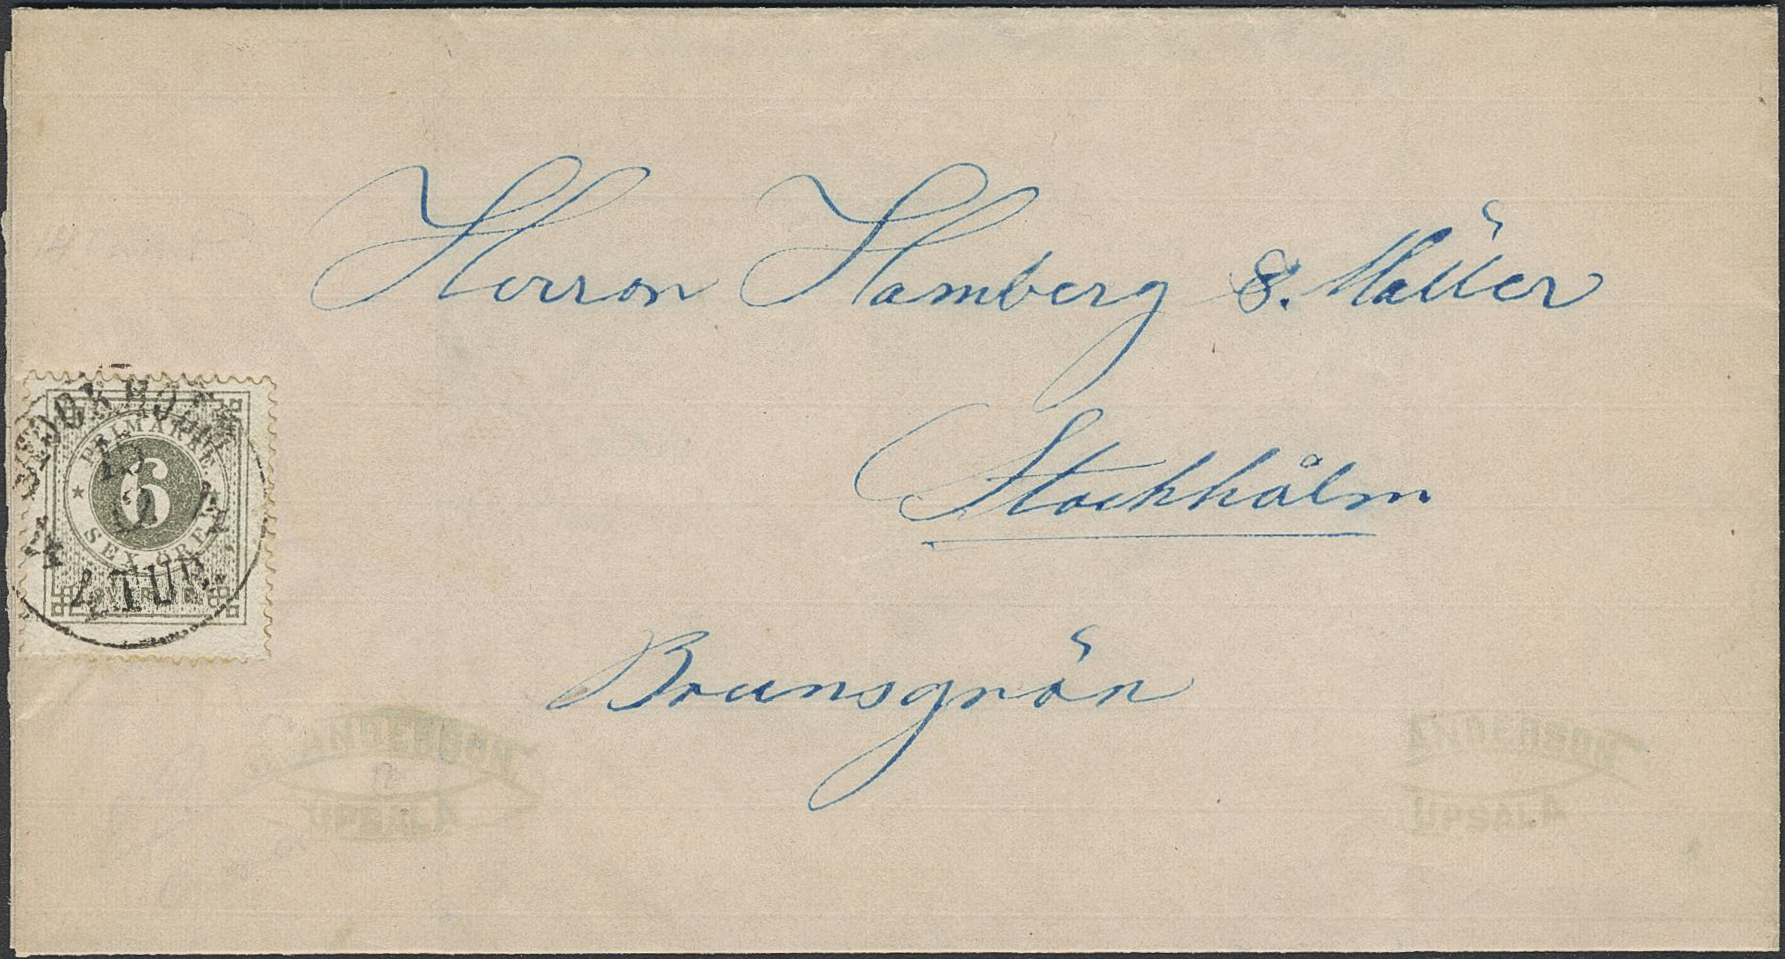 Herrar Hamberg & Möller
Stockholm
Brunsgrän
STOCKHOLM
15
12
2 TUR.
FRIMÄRKE
6
SEX ÖRE
ANDERSON
UPSALA
ANDERSON
UPSALA